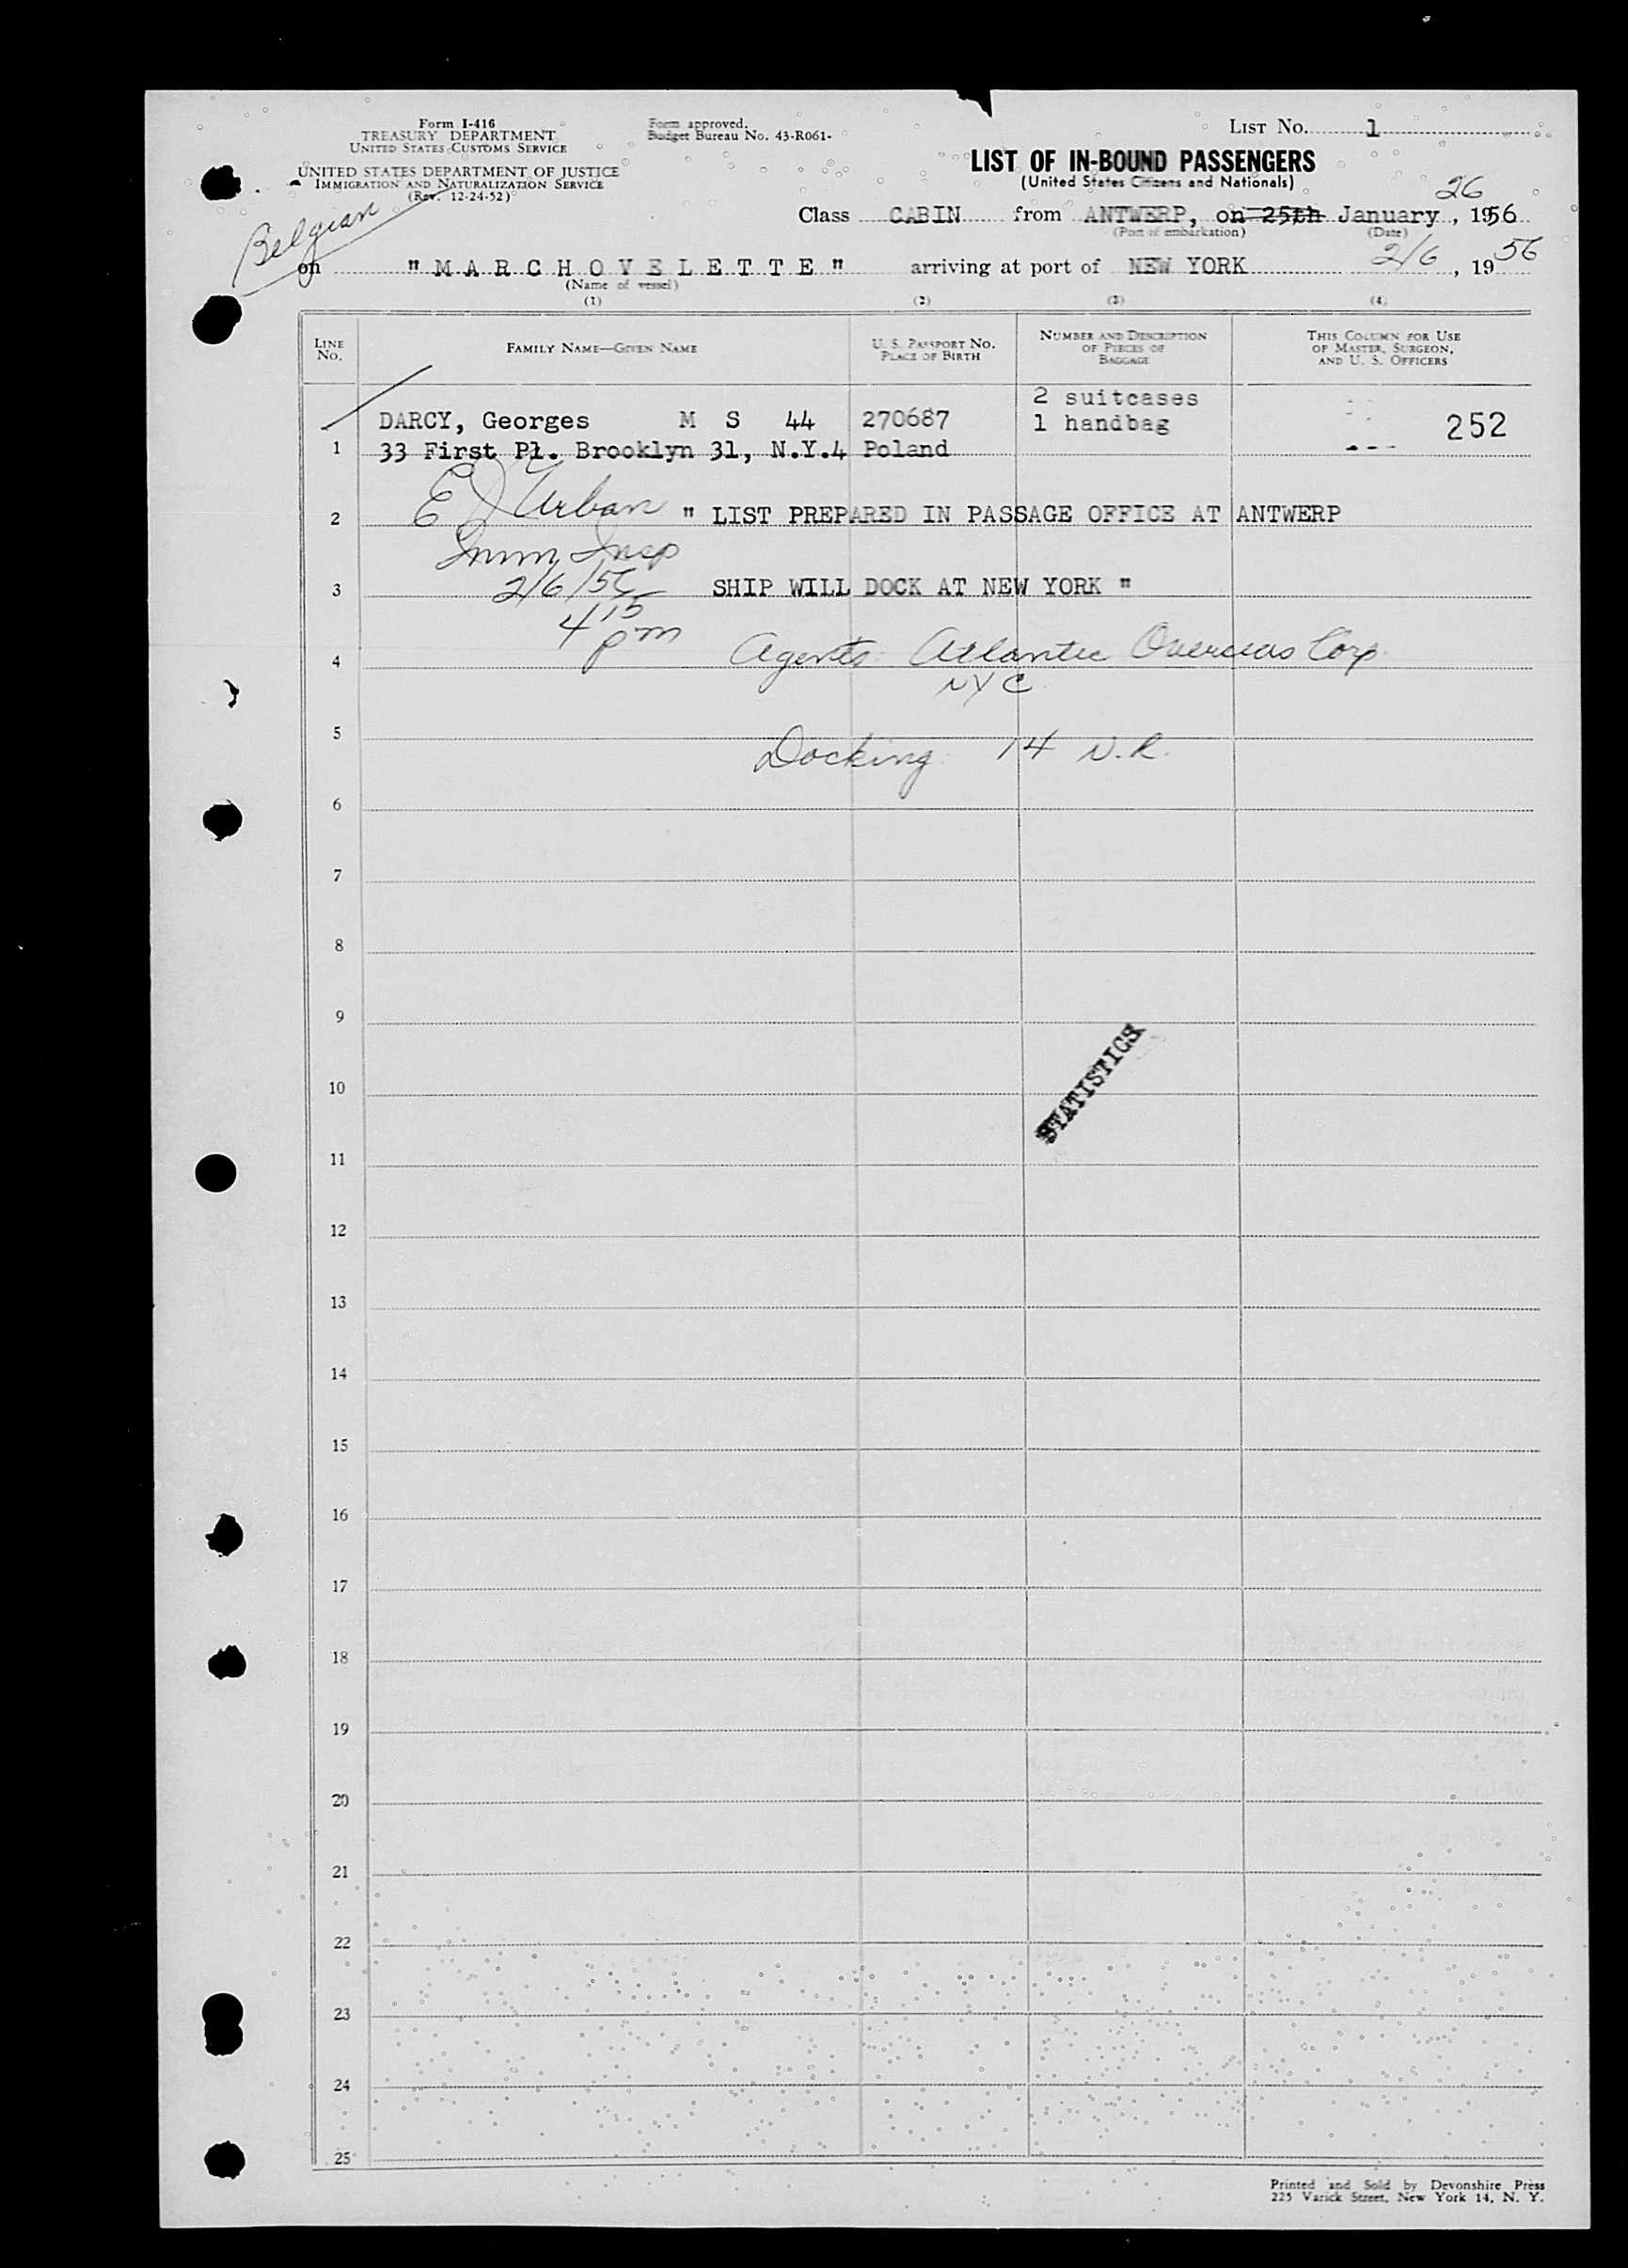 Form I-416
TREASURY DEPARTMENT
UNITED STATES CUSTOMS SERVICE
UNITED STATES DEPARTMENT OF JUSTICE
IMMIGRATION AND NATURALIZATION SERVICE
(Rev. 12-24-52)
Form approved.
Budget Bureau No. 43-R061-
LIST NO. 1
LIST OF IN-BOUND PASSENGERS
(United States Citizens and Nationals)
26
Class CABIN from ANTWERP, on 25th January, 1956
(Port of embarkation) (Date)
Belgian
on "MARCHOVELETTE" arriving at port of NEW YORK 2/6, 1956
(Name of vessel)
(1) (2) (3) (4)
LINE NO. FAMILY NAME—GIVEN NAME U. S. PASSPORT NO. PLACE OF BIRTH NUMBER AND DESCRIPTION OF PIECES OF BAGGAGE THIS COLUMN FOR USE OF MASTER, SURGEON, AND U. S. OFFICERS
2 suitcases
DARCY, Georges M S 44 270687 1 handbag 252
1 33 First Pl. Brooklyn 31, N.Y.4 Poland
E J Urban
2 " LIST PREPARED IN PASSAGE OFFICE AT ANTWERP
Imm Insp
3 2/6/56 SHIP WILL DOCK AT NEW YORK "
4 15 pm
4 Agents Atlantic Overseas Corp.
NYC
5
Docking 14 N.R.
6
7
8
9
STATISTICS
10
11
12
13
14
15
16
17
18
19
20
21
22
23
24
25
Printed and Sold by Devonshire Press
225 Varick Street, New York 14, N. Y.